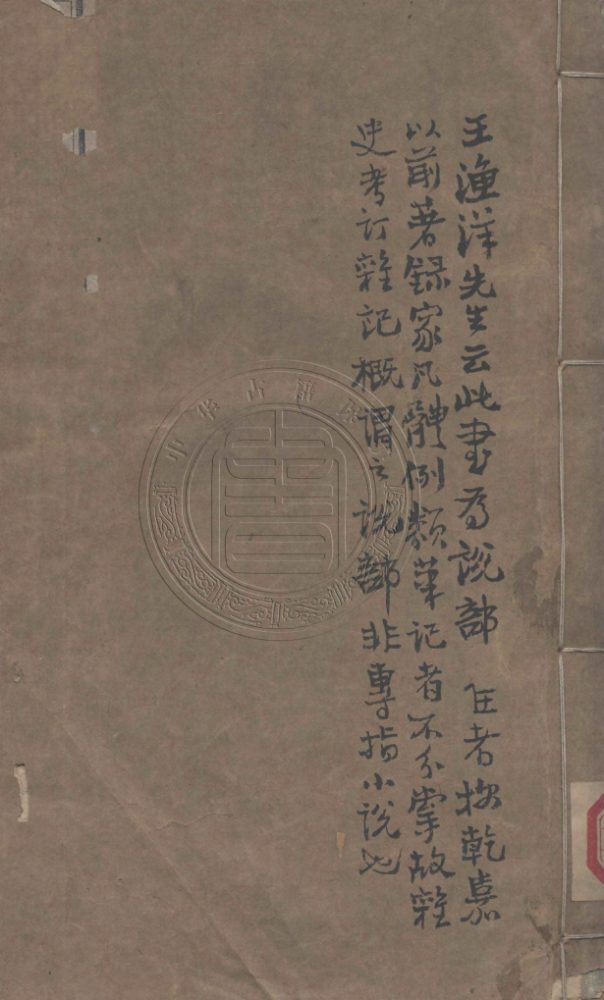 王漁洋先生云此書為說部 任者按乾嘉
以前著録家凡體例類筆記者不分掌故雜
史考订雜記概謂之説部非專指小説也
中华古籍